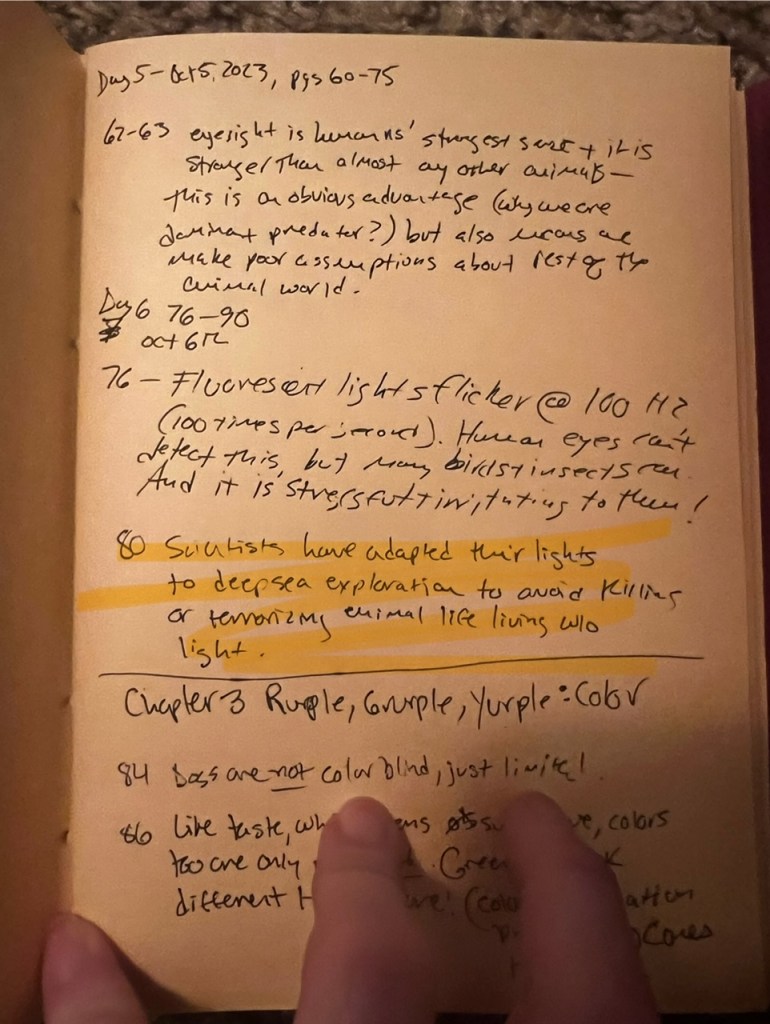 Day 5 - Oct 5, 2023, pgs 60-75
62-63 eyesight is humans' strongest sense + it is
stronger than almost any other animals -
this is an obvious advantage (why we are
dominant predator?) but also means we
make poor assumptions about rest of the
animal world.
Day 6 76-90
oct 6th
76 - Fluorescent lights flicker @ 100 Hz
(100 times per second). Human eyes can't
detect this, but many birds + insects can.
And it is stressful + irritating to them!
80 Scientists have adapted their lights
to deepsea exploration to avoid killing
or terrorizing animal life living w/o
light.
Chapter 3 Rurple, Grurple, Yurple: Color
84 Dogs are not color blind, just limited.
86 Like taste, colors
too are only
different
cones